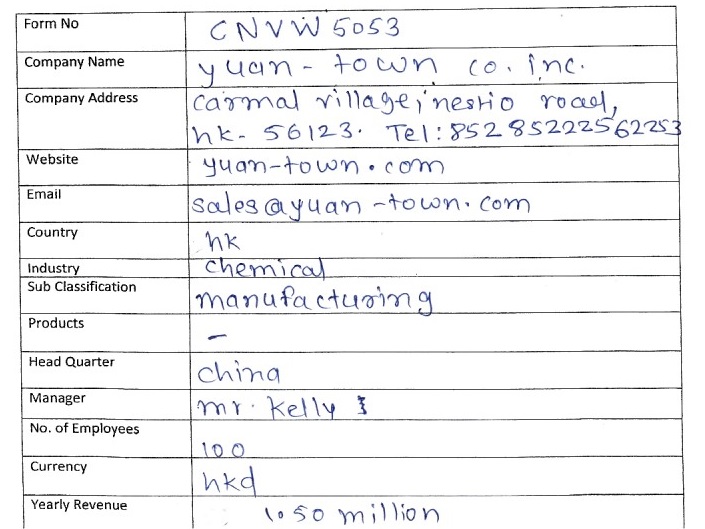 Form No CNVW5053
Company Name yuan-town co. inc.
Company Address carmal village, nestio road,
hk- 56123. Tel: 852 85222562253
Website yuan-town.com
Email sales@yuan-town.com
Country hk
Industry chemical
Sub Classification manufacturing
Products -
Head Quarter china
Manager mr. kelly
No. of Employees 100
Currency hkd
Yearly Revenue 1.50 million